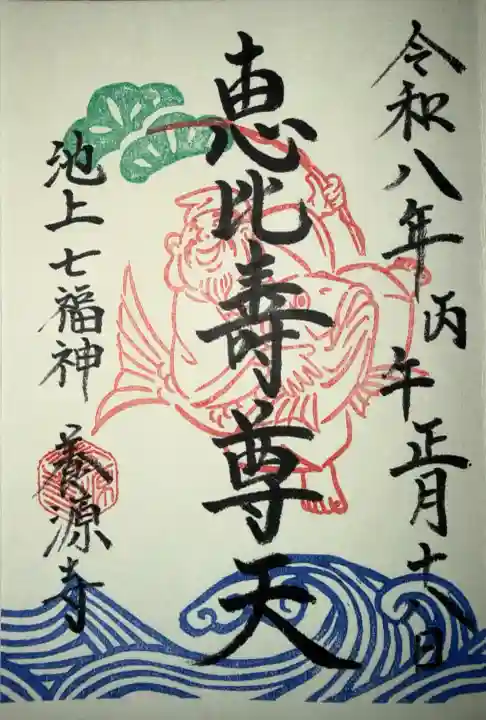 令和八年丙午正月十八日
恵比壽尊天
池上七福神
養源寺